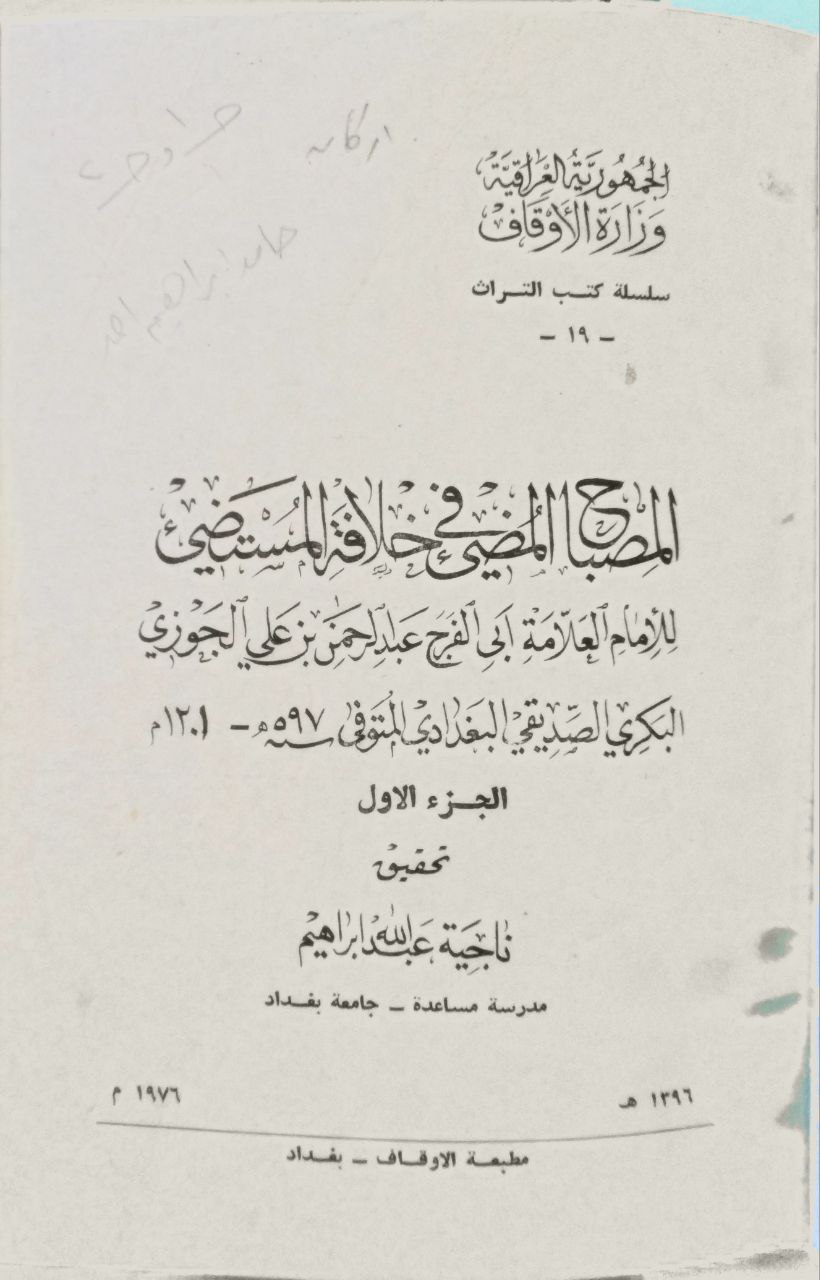 الجُمْهُورِيَّةُ العِرَاقِيَّة
وَزَارَة الأَوْقَاف
سلسلة كتب التراث
- ١٩ -
المِصْبَاح المُضِيْئ في خِلافَةِ المُسْتَضِيْئ
لِلإِمَامِ العَلّامَةِ أَبي الفَرَج عَبدِالرحمٰن بن عَلي الجَوْزِي
البَكري الصِّدِّيقي البَغْدَادِي المُتَوَفىٰ سنة ٥٩٧ هـ - ١٢٠١ م
الجزء الاول
تحقيق
نَاجِيَة عَبدالله ابراهيم
مدرسة مساعدة - جامعة بغداد
١٣٩٦ هـ ١٩٧٦ م
مطبعة الاوقاف - بغداد
حامد ابراهيم احمد